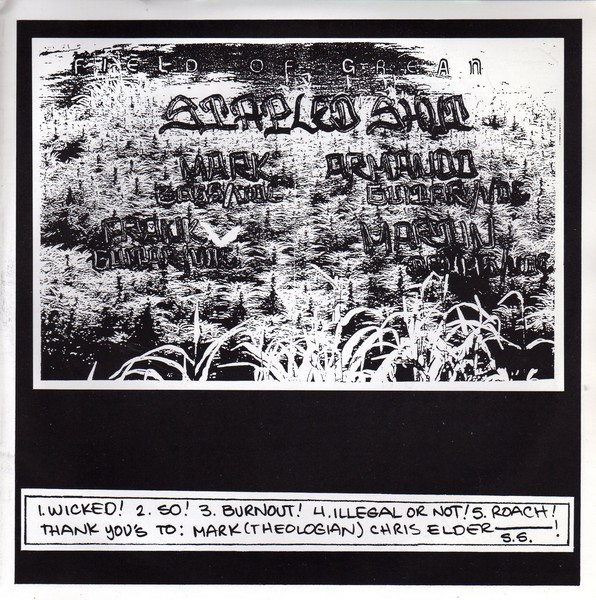 FIELD OF GREAN
STAPLED SHUT
MARK ARMANDO
BASS/VOC GUITAR/VOC
FRANK MARTIN
GUITAR/VOC DRUMS/VOC
1. WICKED! 2. SO! 3. BURNOUT! 4. ILLEGAL OR NOT! 5. ROACH!
THANK YOU'S TO: MARK (THEOLOGIAN) CHRIS ELDER ______!
S.S.